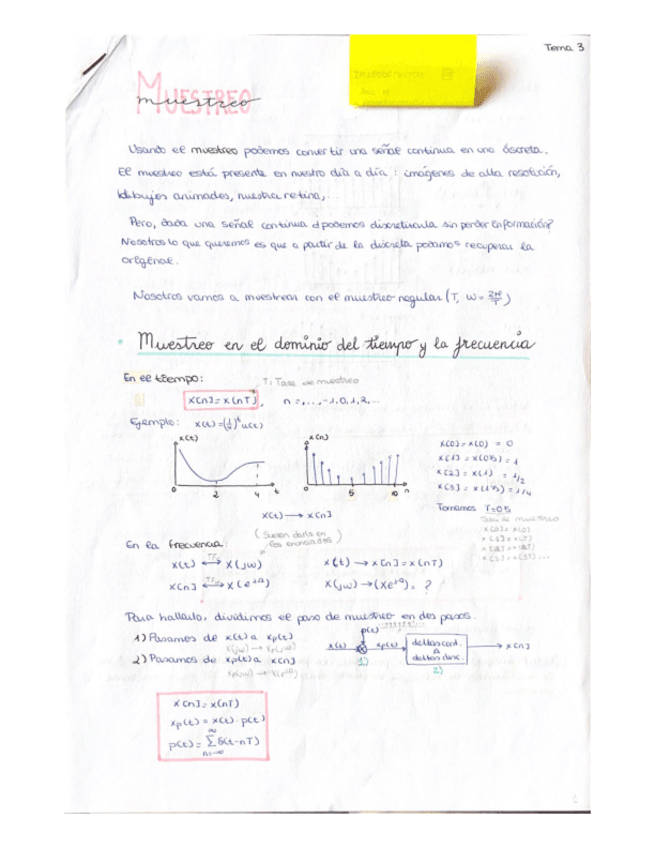 Tema 3
MUESTREO
muestreo
Usando el muestreo podemos convertir una señal continua en una discreta.
El muestreo está presente en nuestro día a día: imágenes de alta resolución,
dibujos animados, nuestra retina,...
Pero, dada una señal continua ¿podemos discretizarla sin perder información?
Nosotros lo que queremos es que a partir de la discreta podamos recuperar la
original.
Nosotros vamos a muestrear con el muestreo regular (T, ω = 2π/T)
• Muestreo en el dominio del tiempo y la frecuencia
En el tiempo:
T: Tasa de muestreo
x[n] = x(nT), n = ..., -1, 0, 1, 2, ...
Ejemplo: x(t) =
u(t)
x(t)
0 2 4 t
x[n]
0 5 10 n
x(t) → x[n]
x[0] = x(0) = 0
x[1] = x(0'5) = 1
x[2] = x(1) = 1/2
x[3] = x(1'5) = 1/4
Tomamos T=0'5
Tasa de muestreo
x[0] = x(0)
x[1] = x(T)
x[2] = x(2T)
x[3] = x(3T)...
En la frecuencia:
(Suelen darla en
los enunciados)
x(t) ↔ X(jω)
x[n] ↔ X(e^jΩ)
x(t) → x[n] = x(nT)
X(jω) → (X(e^jΩ) = ?
Para hallarlo, dividimos el paso de muestreo en dos pasos.
1) Pasamos de x(t) a xp(t)
X(jω) → Xp(jω)
2) Pasamos de xp(t) a x[n]
Xp(jω) → X(e^jΩ)
p(t)
x(t)
xp(t)
deltas cont.
a
deltas disc.
x[n]
1)
2)
x[n] = x(nT)
xp(t) = x(t) · p(t)
p(t) = ∑_{n=-∞}^{∞} δ(t-nT)
1